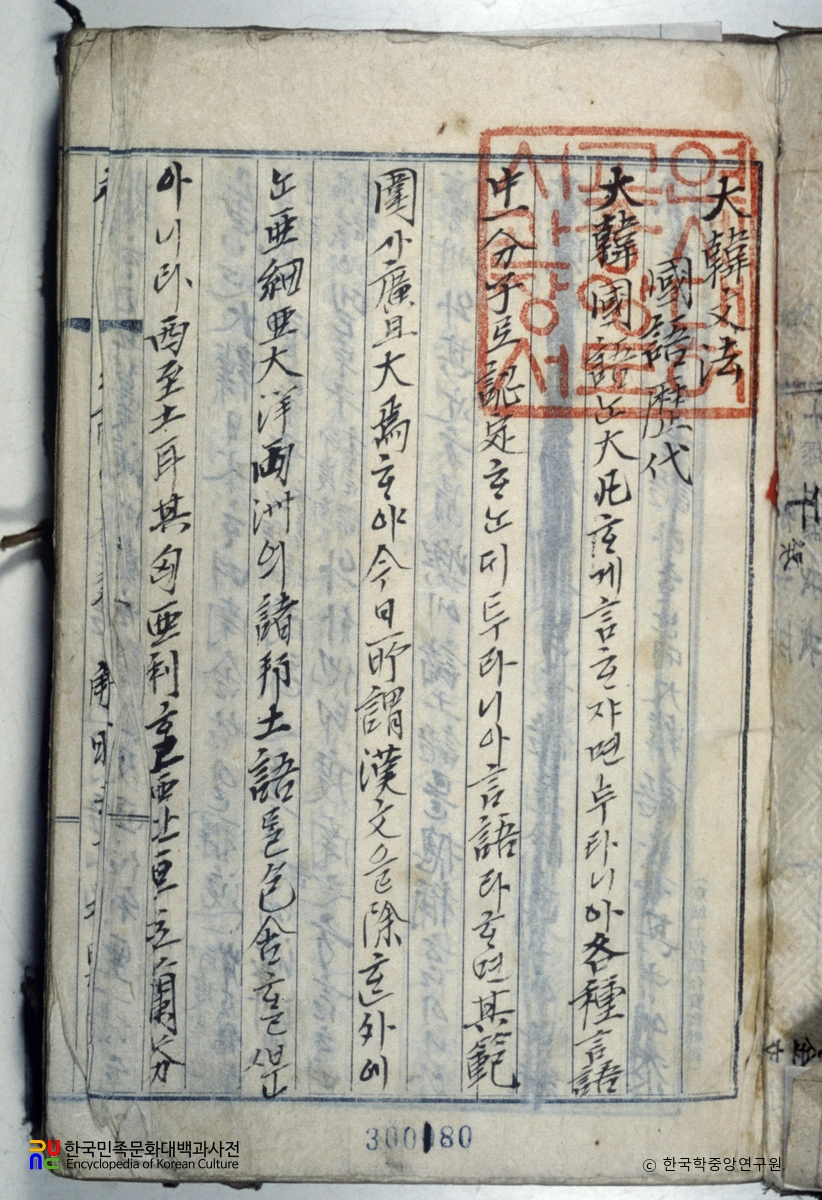 大韓文法
國語歷代
大韓國語ᄂᆞᆫ大凡ᄒᆞ게言ᄒᆞ쟈면투라니아各種言語
中一分子로認定ᄒᆞᄂᆞᆫ디투라니아言語라ᄒᆞ면其範
圍가廣且大焉ᄒᆞ야今日所謂漢文을除ᄒᆞᆫ外에
ᄂᆞᆫ亞細亞大洋兩洲의諸邦土語들包含ᄒᆞᆯᄲᅮᆫ
아니라西至土耳其匈亞利ᄒᆞ고西北亘
300180
한국민족문화대백과사전
Encyclopedia of Korean Culture
© 한국학중앙연구원